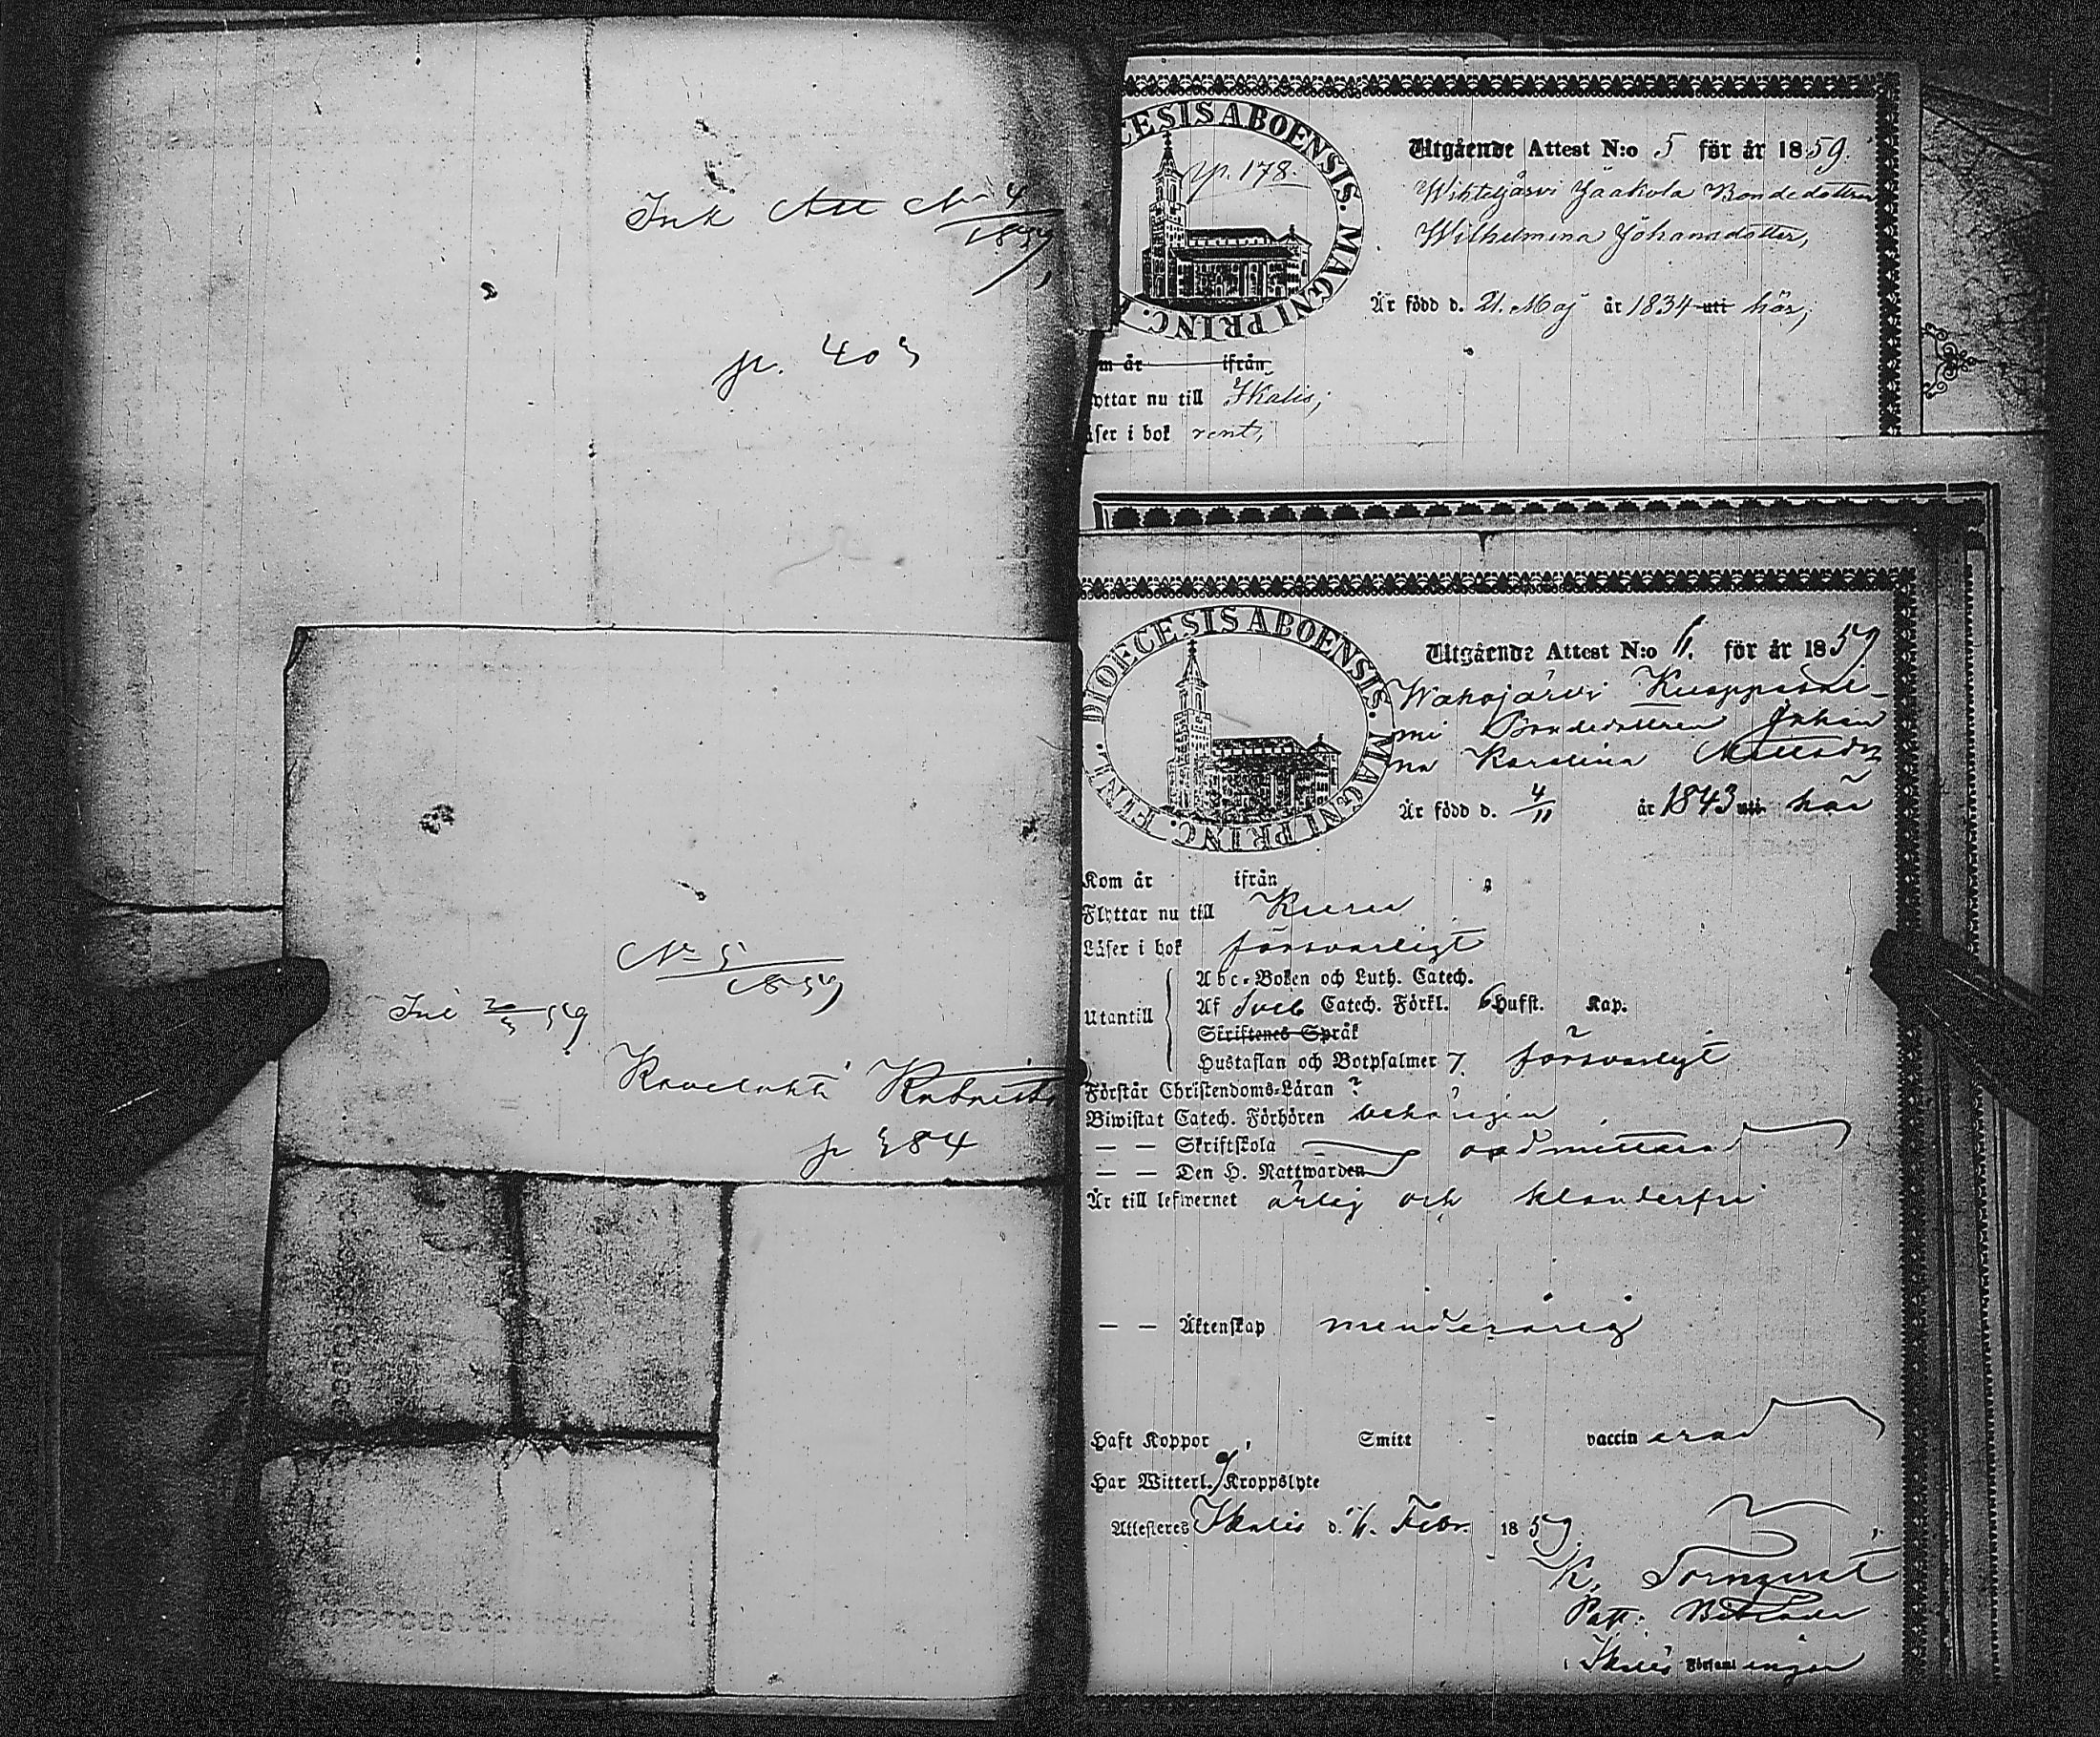 Ink Att No 4
1859
p. 403
No 5
1859
Ink 20/3 59
p 384
DIOECESIS ABOENSIS. MAGNI PRINC.
p. 178.
Utgående Attest N:o 5 för år 1859.
Wihteljärvi Jaakola Bondedottren
Wilhelmina Johansdotter,
Är född d. 21. Maj år 1834 uti här;
m år ifrån
yttar nu till Ikalis;
äser i bok rent,
DIOECESIS ABOENSIS. MAGNI PRINC. FINL.
Utgående Attest N:o 6. för år 1859
Wahojärvi Kuappsal-
mi Bondedottren Johan
na Karolina Mattsdr
Är född d. 4/11 år 1843 uti här
Kom år ifrån
Flyttar nu till Kuru
Läser i bok försvarligt
Utantill
Abc-Boken och Luth. Catech.
Af Sveb Catech. Förkl. 6 Hufst. Kap.
Skriftenes Språk
Hustaflan och Botpsalmer 7. försvarligt
Förstår Christendoms-Läran
Biwistat Catech. Förhören behörigen
— — Skriftskola oadmitterad
— — Den H. Nattwarden
Är till lefwernet ärlig och klanderfri
— — Äktenskap minderårig
Haft Koppor Smitt vaccinerad
Har Witterl. Kroppslyte
Attesteres Ikalis d. 6. Febr. 1859.
K. Tornqvist
i Ikalis Församlingar